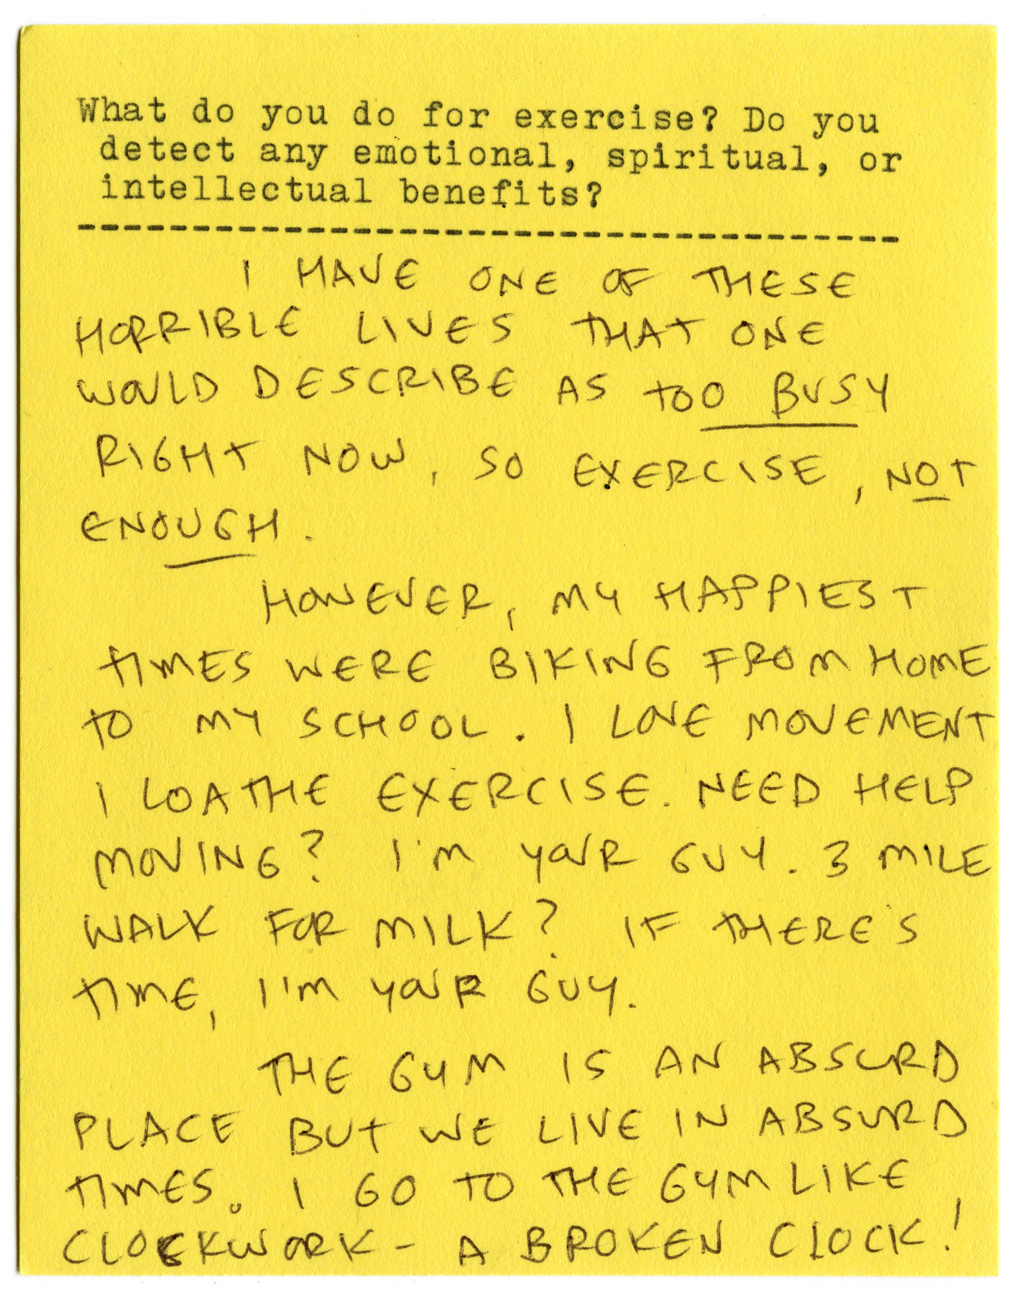 What do you do for exercise? Do you
detect any emotional, spiritual, or
intellectual benefits?
I HAVE ONE OF THESE
HORRIBLE LIVES THAT ONE
WOULD DESCRIBE AS TOO BUSY
RIGHT NOW, SO EXERCISE, NOT
ENOUGH.
HOWEVER, MY HAPPIEST
TIMES WERE BIKING FROM HOME
TO MY SCHOOL. I LOVE MOVEMENT
I LOATHE EXERCISE. NEED HELP
MOVING? I'M YOUR GUY. 3 MILE
WALK FOR MILK? IF THERE'S
TIME, I'M YOUR GUY.
THE GYM IS AN ABSURD
PLACE BUT WE LIVE IN ABSURD
TIMES. I GO TO THE GYM LIKE
CLOCKWORK - A BROKEN CLOCK!